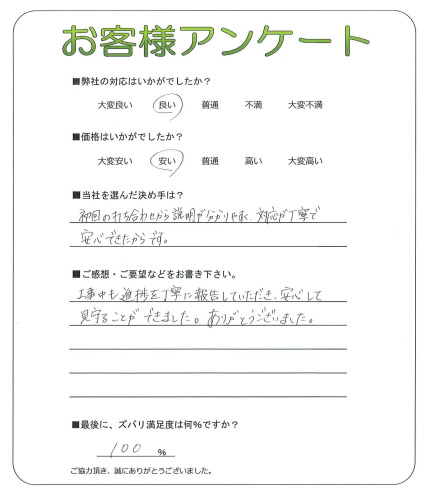 お客様アンケート
■弊社の対応はいかがでしたか？
大変良い 良い 普通 不満 大変不満
■価格はいかがでしたか？
大変安い 安い 普通 高い 大変高い
■当社を選んだ決め手は？
初回の打ち合わせから説明が分かりやすく、対応が丁寧で
安心できたからです。
■ご感想・ご要望などをお書き下さい。
工事中も進捗を丁寧に報告していただき、安心して
見守ることができました。ありがとうございました。
■最後に、ズバリ満足度は何%ですか？
100 %
ご協力頂き、誠にありがとうございました。